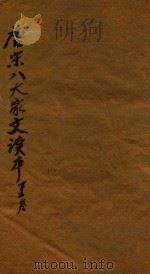 研狗
唐宋八大家文读本